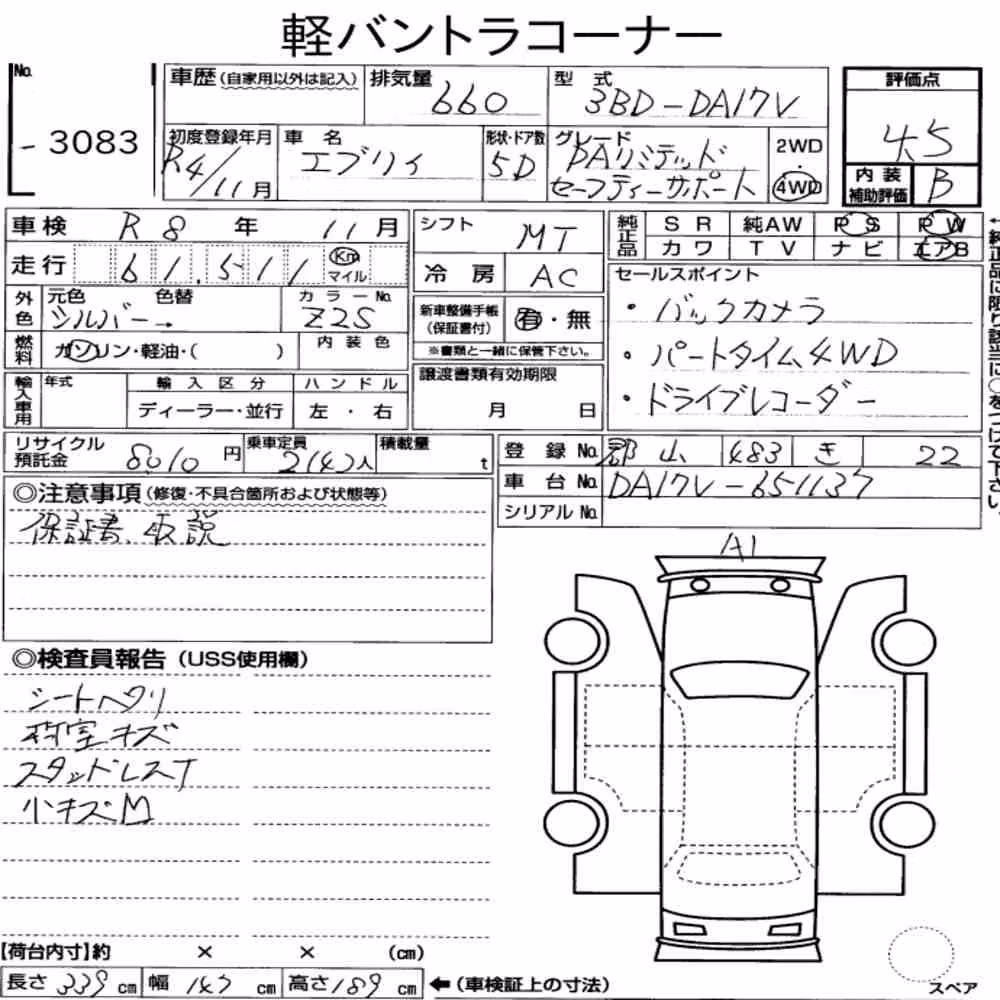 軽バントラコーナー
No.
- 3083
車歴(自家用以外は記入)
排気量 660
型式 3BD-DA17V
初度登録年月 R4/11月
車名 エブリィ
形状・ドア数 5D
グレード PAリミテッド
セーフティーサポート
2WD
・
4WD
評価点
4.5
内装
補助評価 B
車検 R8年 11月
走行 61,511 Km
マイル
外色
元色 色替
シルバー→
カラーNo.
Z2S
燃料 ガソリン・軽油・( )
内装色
輸入車用
年式
輸入区分
ディーラー・並行
ハンドル
左・右
シフト MT
冷房 AC
新車整備手帳
(保証書付)
有・無
※書類と一緒に保管下さい。
譲渡書類有効期限
月 日
純正品 SR 純AW PS PW
カワ TV ナビ エアB
←純正品に限り該当に○をつけて下さい。
セールスポイント
・バックカメラ
・パートタイム4WD
・ドライブレコーダー
リサイクル
預託金 8010円
乗車定員
2(4)人
積載量
t
登録No. 郡山 483 き 22
車台No. DA17V-651137
シリアルNo.
◎注意事項(修復・不具合箇所および状態等)
保証書、取説
◎検査員報告(USS使用欄)
シートヘタリ
荷室キズ
スタッドレスT
小キズM
A1
【荷台内寸】約 × × (cm)
長さ 339 cm 幅 147 cm 高さ 189 cm ←(車検証上の寸法)
スペア